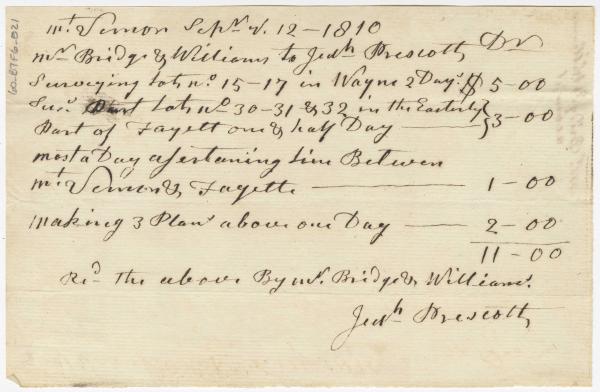 Mt. Vernon Sepr. 12-1810
Mrs Bridge & Williams to Jedh Prescott, Dr
Surveying Lots no. 15-17 in Wayne 2 Days $ 5-00
Sur. Part Lots no 30-31 & 32 in the Easterly
Part of Fayett one & half Day 3-00
most a Day asertaning Line Between
Mt Vernon & Fayette 1-00
Making 3 Plans above one Day 2-00
11-00
Recd the above By Mrs. Bridge & Williams.
Jedh Prescott,
60-87F6-021